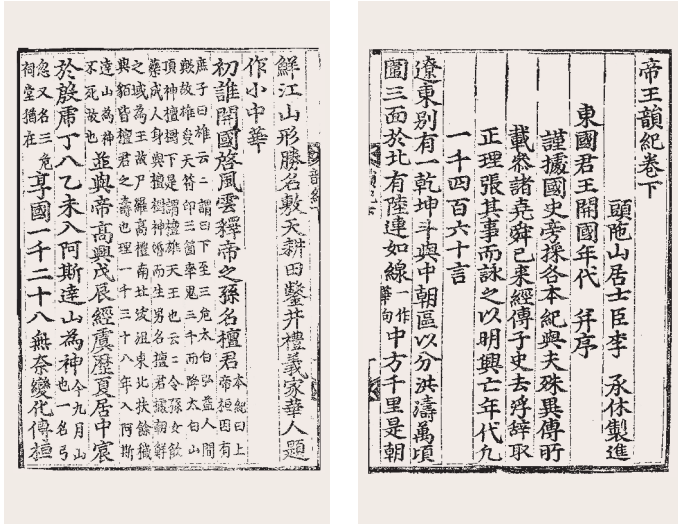 帝王韻紀卷下
頭陁山居士臣李 承休製進
東國君王開國年代 幷序
謹據國史旁採各本紀與夫殊異傳所
載叅諸堯舜已來經傳子史去浮辭取
正理張其事而詠之以明興亡年代九
一千四百六十言
遼東別有一乾坤斗與中朝區以分洪濤萬頃
圍三面於北有陸連如線一作華句中方千里是朝
鮮江山形勝名敷天耕田鑿井禮義家華人題
作小中華
初誰開國啓風雲釋帝之孫名檀君本紀曰上帝桓因有
庶子曰雄云云謂曰下至三危太白弘益人間
歟故雄受天符印三箇率鬼三千而降太白山
頂神檀樹下是謂檀雄天王也云云令孫女飮
藥成人身與檀樹神婚而生男名檀君據朝鮮
之域爲王故尸羅高禮南北沃沮東北扶餘穢
與貊皆檀君之壽也理一千三十八年入阿斯
達山爲神不死故也並與帝高興戊辰經虞歷夏居中宸
於殷虎丁八乙未入阿斯達山爲神今九月山也一名弓
忽又名三危祠堂猶在享國一千二十八無奈變化傳桓